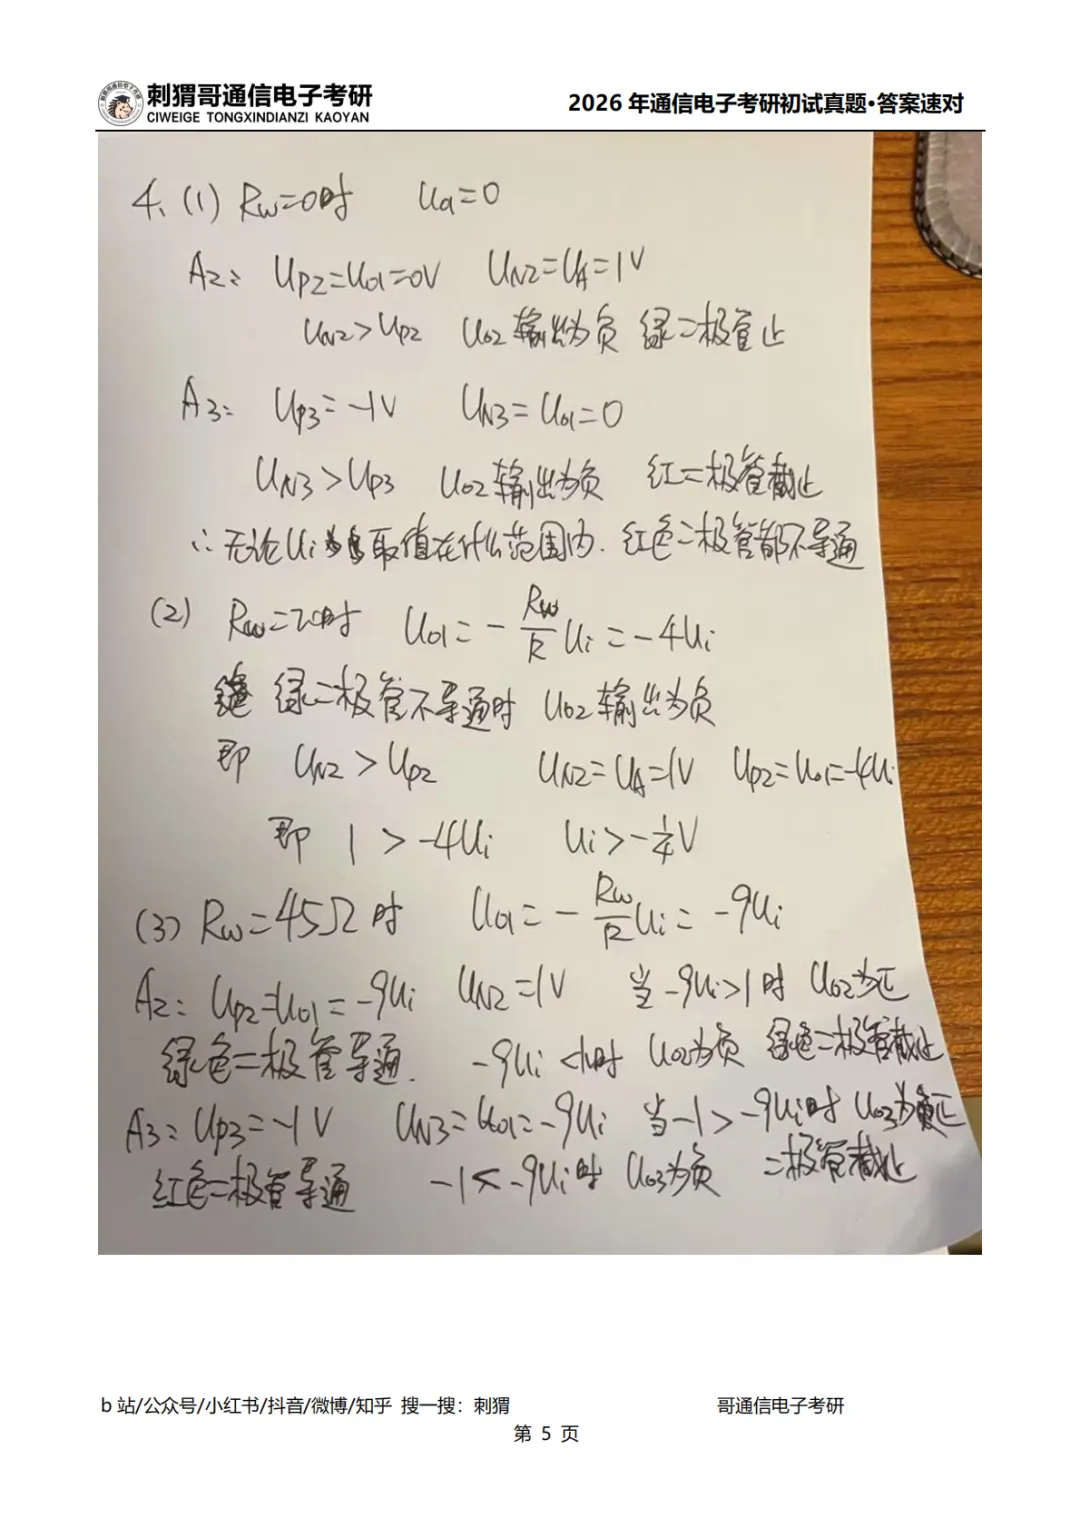 刺猬哥通信电子考研
CIWEIGE TONGXINDIANZI KAOYAN
2026 年通信电子考研初试真题•答案速对
4、(1) Rw=0时 Uo1=0
A2: Up2=Uo1=0V UN2=UA=1V
UN2>Up2 Uo2输出为负 绿二极管止
A3: Up3=-1V UN3=Uo1=0
UN3>Up3 Uo2输出为负 红二极管截止
∴无论Ui取值在什么范围内. 红色二极管都不导通
(2) Rw=20时 Uo1=-Rw/R Ui=-4Ui
绿二极管不导通时 Uo2输出为负
即 UN2>Up2 UN2=UA=1V Up2=Uo1=-4Ui
即 1>-4Ui Ui>-1/4V
(3) Rw=45Ω时 Uo1=-Rw/R Ui=-9Ui
A2: Up2=Uo1=-9Ui UN2=1V 当-9Ui>1时 Uo2为正
绿色二极管导通. -9Ui<1时 Uo2为负 绿色二极管截止
A3: Up3=-1V UN3=Uo1=-9Ui 当-1>-9Ui时 Uo3为正
红色二极管导通 -1<-9Ui时 Uo3为负 二极管截止
b 站/公众号/小红书/抖音/微博/知乎 搜一搜：刺猬
哥通信电子考研
第 5 页